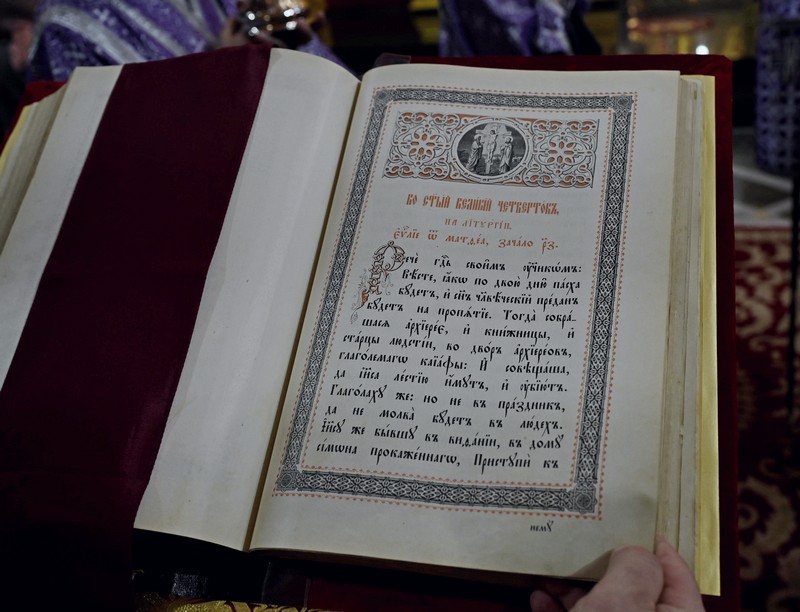 Во ст҃ы́й вели́кїй четверто́къ,
на лїтꙋргі́и.
є҆ѵⷢ҇лїе ѿ матѳе́а, зача́ло р҃з.
Речѐ гдⷭ҇ь свои̑мъ ᲂу҆чн҃кѡ́мъ:
вѣ́сте, ꙗ҆́кѡ по двою̀ дню̑ па́сха
бꙋ́детъ, и҆ сн҃ъ чл҃вѣ́ческїй пре́данъ
бꙋ́детъ на пропѧ́тїе. Тогда̀ собра́-
шасѧ а҆рхїере́є, и҆ кни́жницы, и҆
ста́рцы людсті́и, во дво́ръ а҆рхїере́ѡвъ,
глаго́лемагѡ каїа́фы: И҆ совѣща́ша,
да і҆и҃са ле́стїю и҆́мꙋтъ, и҆ ᲂу҆бїю́тъ.
Глаго́лахꙋ же: но не въ пра́здникъ,
да не молва̀ бꙋ́детъ въ лю́дехъ.
І҆и҃сꙋ же бы́вшꙋ въ виѳа́нїи, въ домꙋ̀
сі́мѡна прокаже́ннагѡ, Пристꙋпѝ къ
немꙋ̀